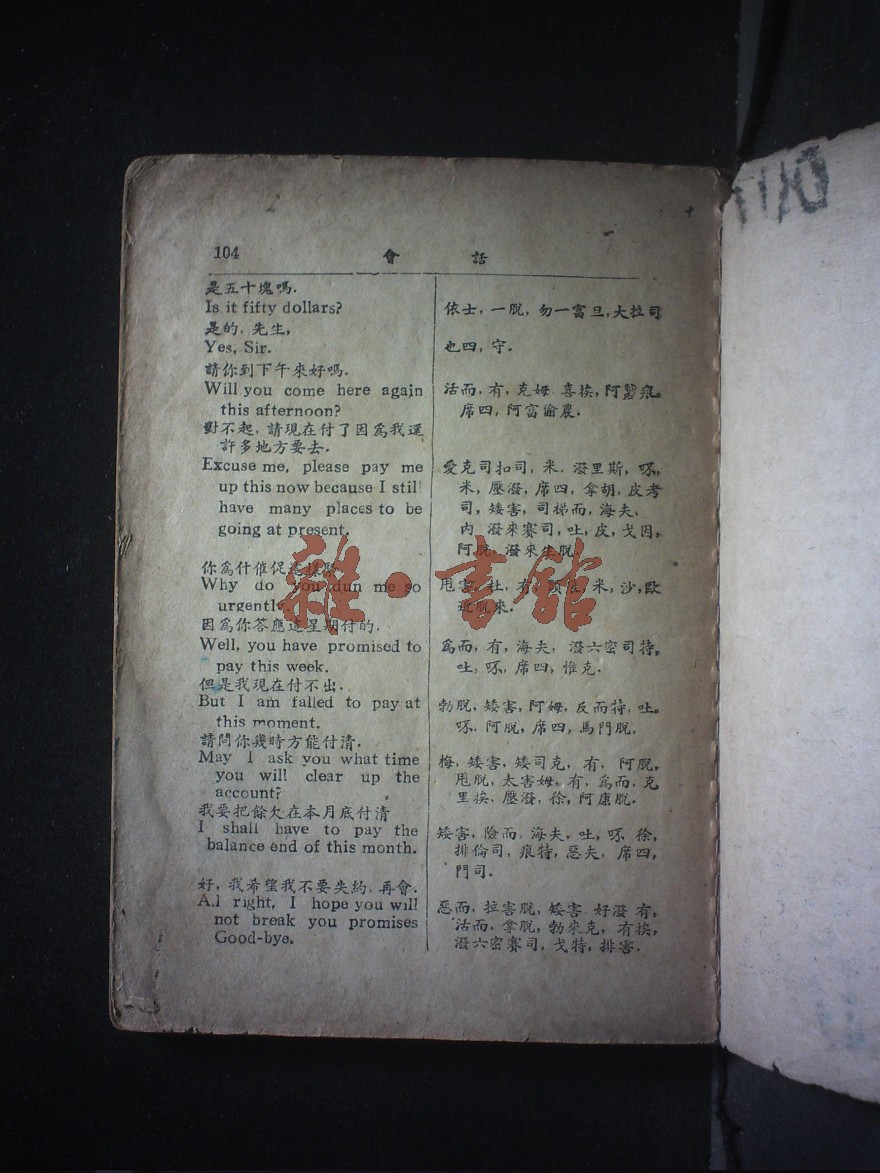 104
會 話
是五十塊嗎.
Is it fifty dollars?
是的, 先生,
Yes, Sir.
請你到下午來好嗎.
Will you come here again
this afternoon?
對不起, 請現在付了因爲我還
許多地方要去.
Excuse me, please pay me
up this now because I still
have many places to be
going at present.
你爲什催促
Why do you dun me so
urgently.
因爲你答應這星期付的.
Well, you have promised to
pay this week.
但是我現在付不出.
But I am falled to pay at
this moment.
請問你幾時方能付清.
May I ask you what time
you will clear up the
account?
我要把餘欠在本月底付清
I shall have to pay the
balance end of this month.
好, 我希望我不要失約, 再會.
All right, I hope you will
not break you promises
Good-bye.
依士, 一脫, 勿一富旦, 大拉司
也四, 守.
活而, 有, 克姆 喜挨, 阿 痕.
席四, 阿富倫農.
愛克司扣司, 米, 潑里斯, 㕭,
米, 壓潑, 席四, 拿胡, 皮考
司, 矮害, 司梯而, 海夫,
内, 潑來賽司, 吐, 皮, 戈因,
阿脫, 潑來生脫
甩害, 社, 有, 米, 沙, 歐
脫來.
爲而, 有, 海夫, 潑六密司特,
吐, 㕭, 席四, 惟克.
勃脫, 矮害, 阿姆, 反而特, 吐,
㕭, 阿脫, 席四, 馬門脫,
梅, 矮害, 矮司克, 有, 阿脫,
甩脫, 太害姆, 有, 爲而, 克
里挨, 壓潑, 徐, 阿康脫.
矮害, 險而, 海夫, 吐, 㕭 徐,
排倫司, 痕特, 惡夫, 席四,
門司.
惡而, 拉害脫, 矮害 好潑 有,
活而, 拿脫, 勃來克, 有挨,
潑六密賽司, 戈特, 排害.
雜·書館